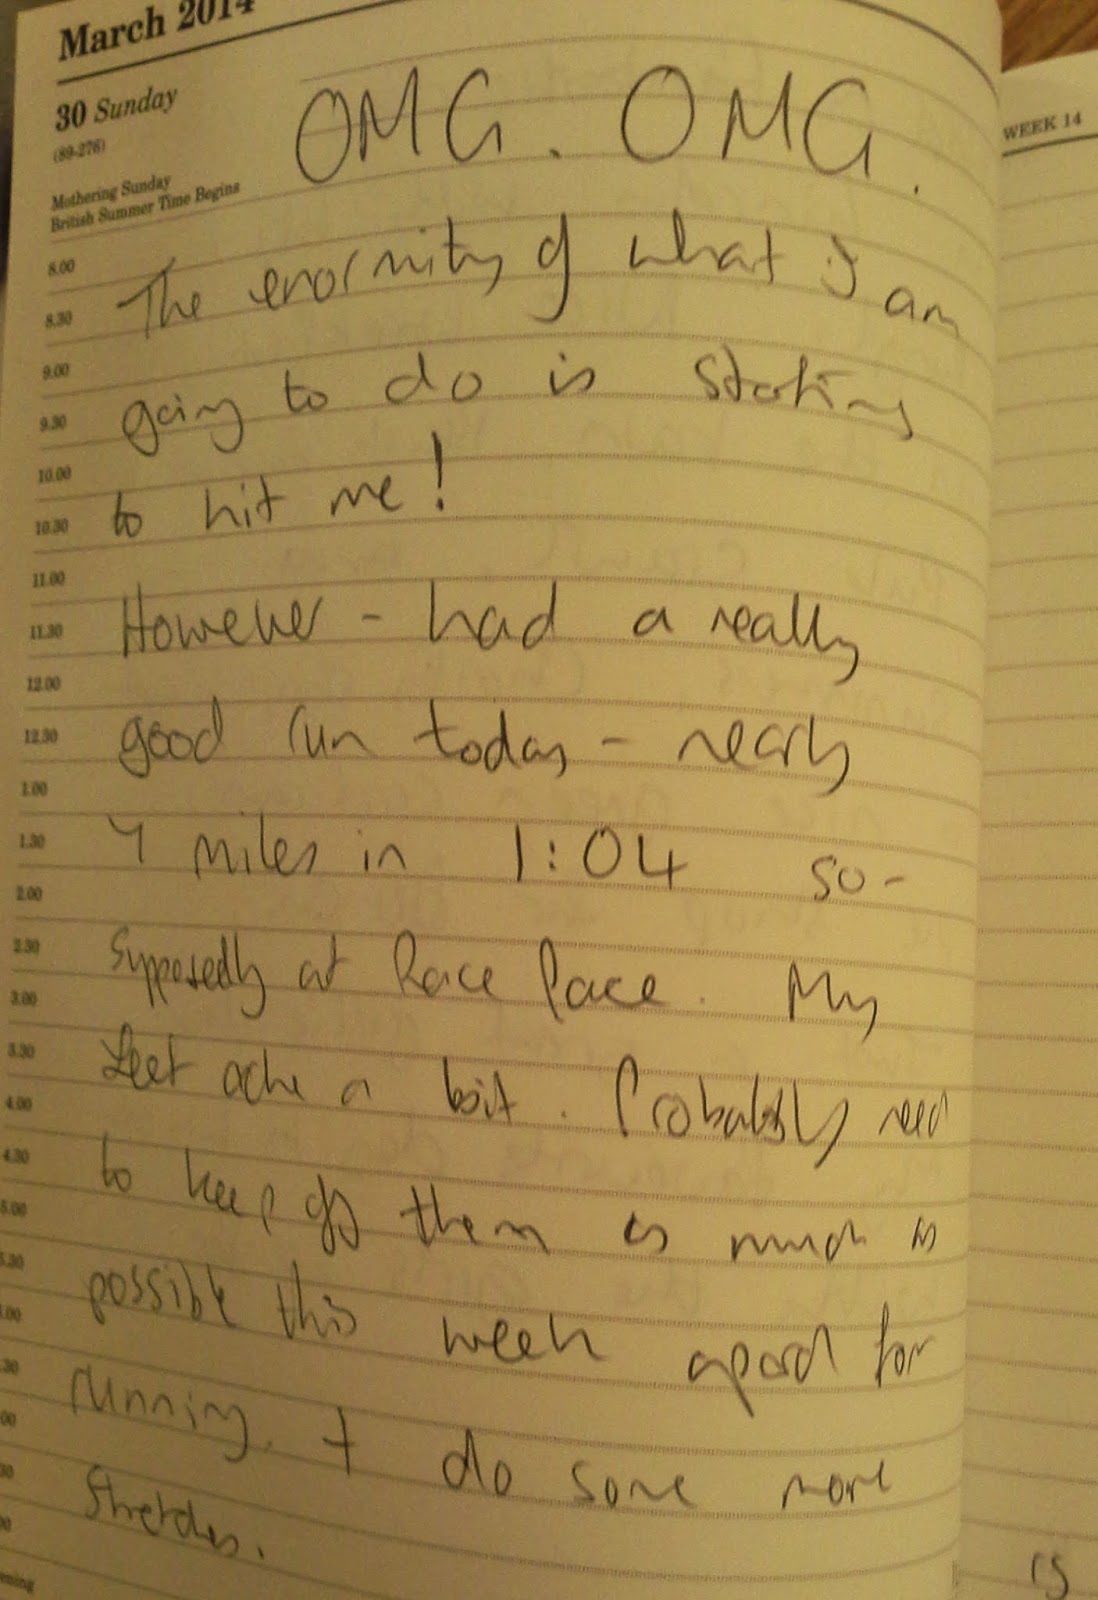 March 2014
30 Sunday
(89-276)
Mothering Sunday
British Summer Time Begins
WEEK 14
OMG. OMG.
8.00
The enormity of what I am
8.30
9.00
going to do is starting
9.30
10.00
to hit me!
10.30
11.00
However - had a really
11.30
12.00
good run today - nearly
12.30
1.00
7 miles in 1:04 so -
1.30
2.00
Supposedly at Race Pace. My
2.30
3.00
feet ache a bit. Probably need
3.30
4.00
to keep off them as much as
4.30
5.00
possible this week apart for
5.30
6.00
running. + do some more
stretches.